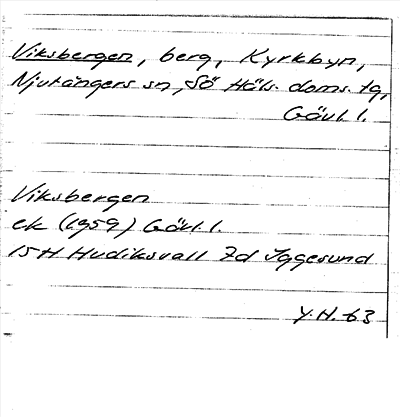 Viksbergen, berg, Kyrkbyn,
Njutångers sn, Sö Häls. doms. tg,
Gävl. l.
Viksbergen
ek (1959) Gävl. l.
15H Hudiksvall 7d Iggesund
Y.H. 63